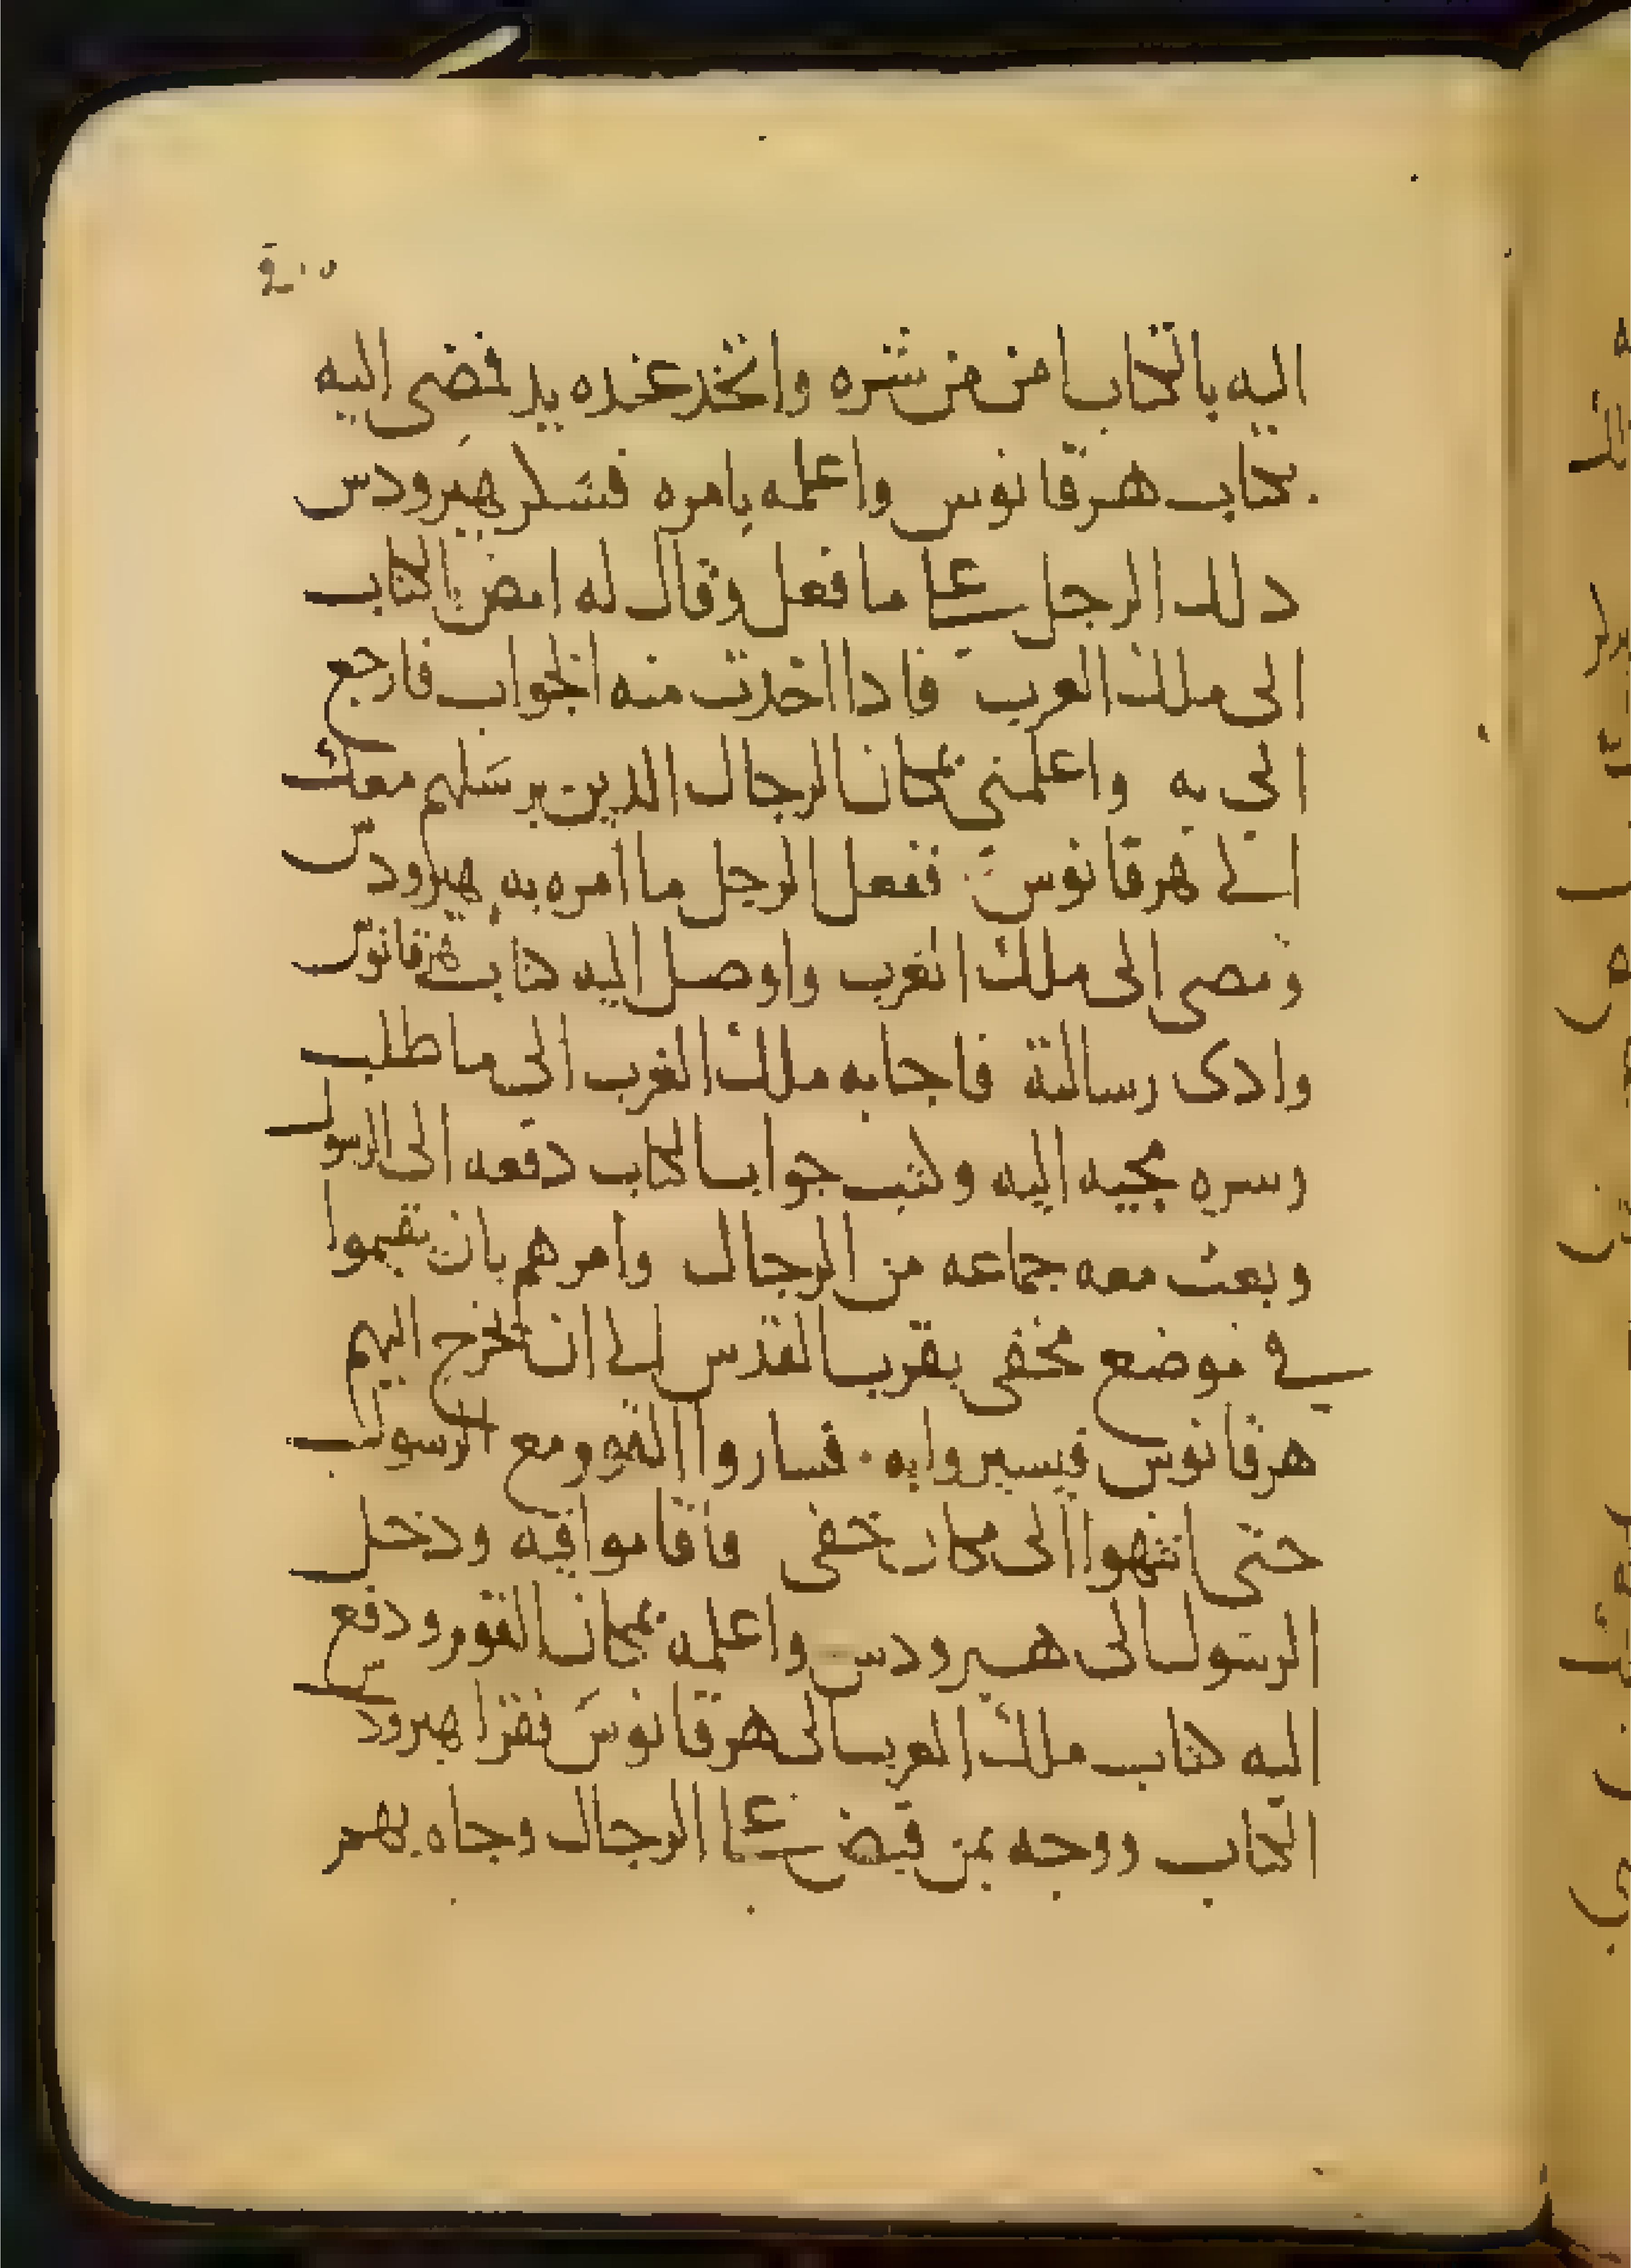 اليه بالكتاب امن من شره واتخد عنده يد فمضى اليه
بكتاب هرقانوس واعلمه بامره فشكر هيرودس
دلك الرجل على ما فعل وقال له امض بالكتاب
الى ملك العرب فادا اخدت منه الجواب فارجع
الي به واعلمني بمكان الرجال الدين يرسلهم معك
الى هرقانوس ففعل الرجل ما امره به هيرودس
ومضى الى ملك العرب واوصل اليه كتاب هرقانوس
وادى رسالته فاجابه ملك العرب الى ما طلب
وسره مجيه اليه وكتب جواب الكتاب دفعه الى الرسول
وبعث معه جماعه من الرجال وامرهم بان يقيموا
في موضع مخفى بقرب القدس الى ان يخرج اليهم
هرقانوس فيسيروا به فساروا القوم مع الرسول
حتى انتهوا الى مكان خفى فاقاموا فيه ودخل
الرسول الى هيرودس واعلمه بمكان القوم ودفع
اليه كتاب ملك العرب الى هرقانوس فقرا هيرودس
الكتاب ووجه بمن قبض على الرجال وجاه بهم